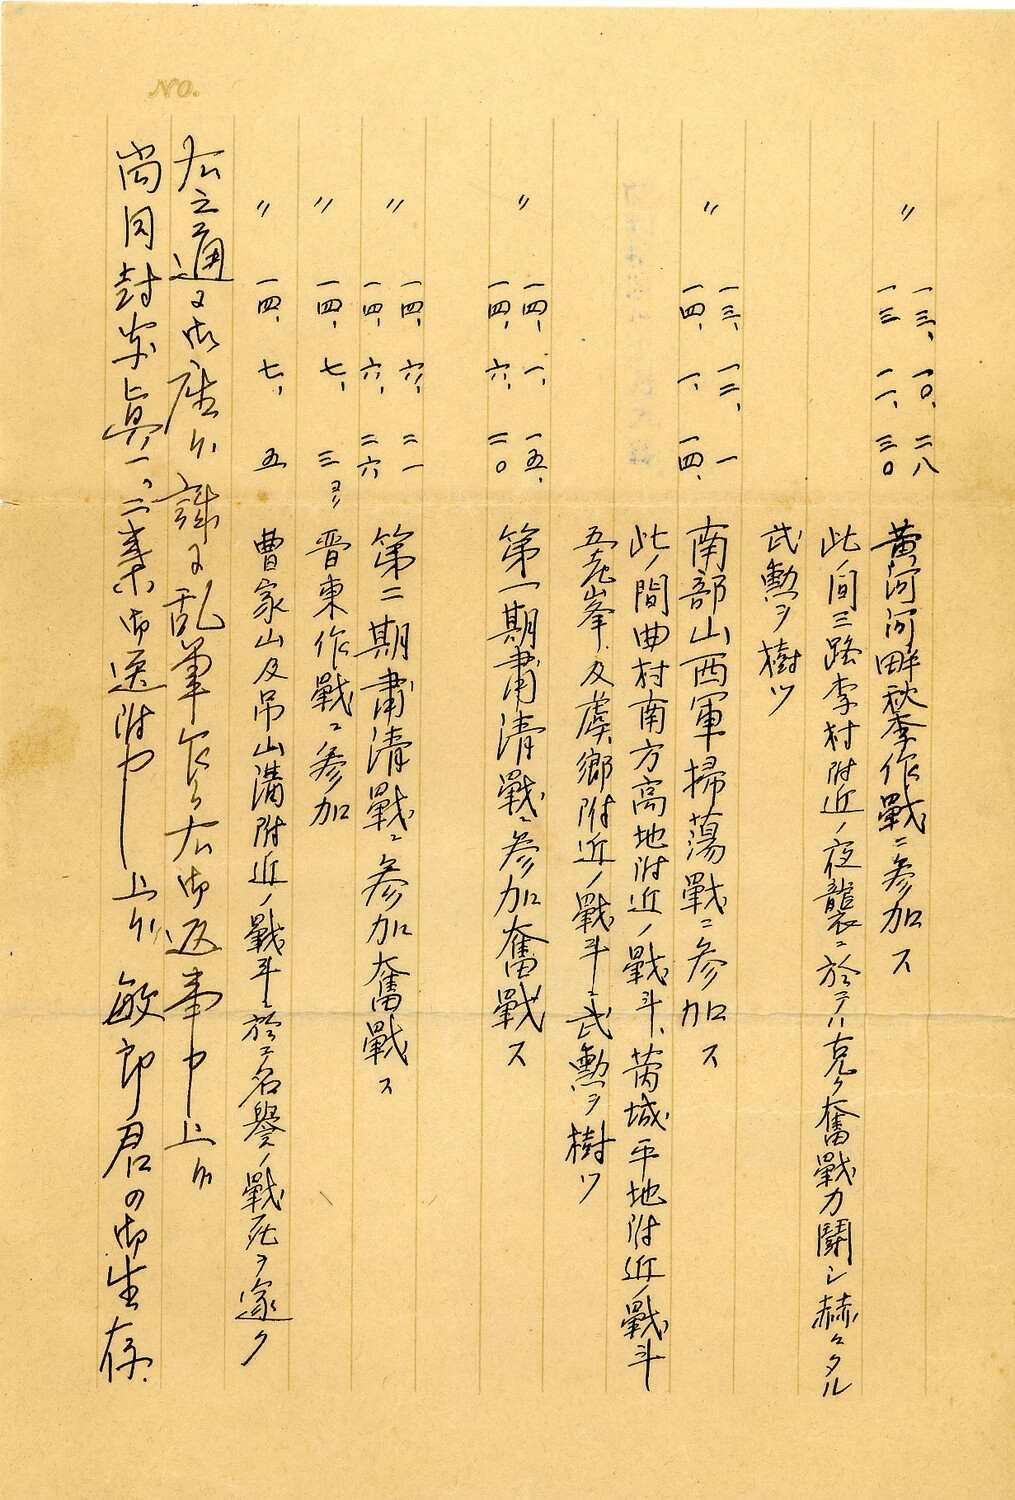 NO.
〃 一三、一〇、二八
一三 一一、三〇 黄河々畔秋季作戰ニ参加ス
此ノ間三路李村附近ノ夜襲ニ於テハ克ク奮戰力鬪シ赫々タル
武勲ヲ樹ツ
〃 一三、一二、一
一四、一、一四、 南部山西軍掃蕩戰ニ参加ス
此ノ間曲村南方高地附近ノ戰斗、芮城平地附近ノ戰斗
五老峯、及虞郷附近ノ戰斗ニ武勲ヲ樹ツ
〃 一四、一、一五、
一四、六、二〇 第一期肅清戰ニ参加奮戰ス
〃 一四、六、二一
一四、六、二六 第二期肅清戰ニ参加奮戰ス
〃 一四、七、三ヨリ 晋東作戰ニ参加
〃 一四、七、五 曹家山及吊山溝附近ノ戰斗ニ於テ名譽ノ戰死ヲ遂ク
右之通りに御座候 誠に乱筆乍ら右御返事申上候
尚同封寫眞一、二葉御送附申し上候 敏郎君の御生存